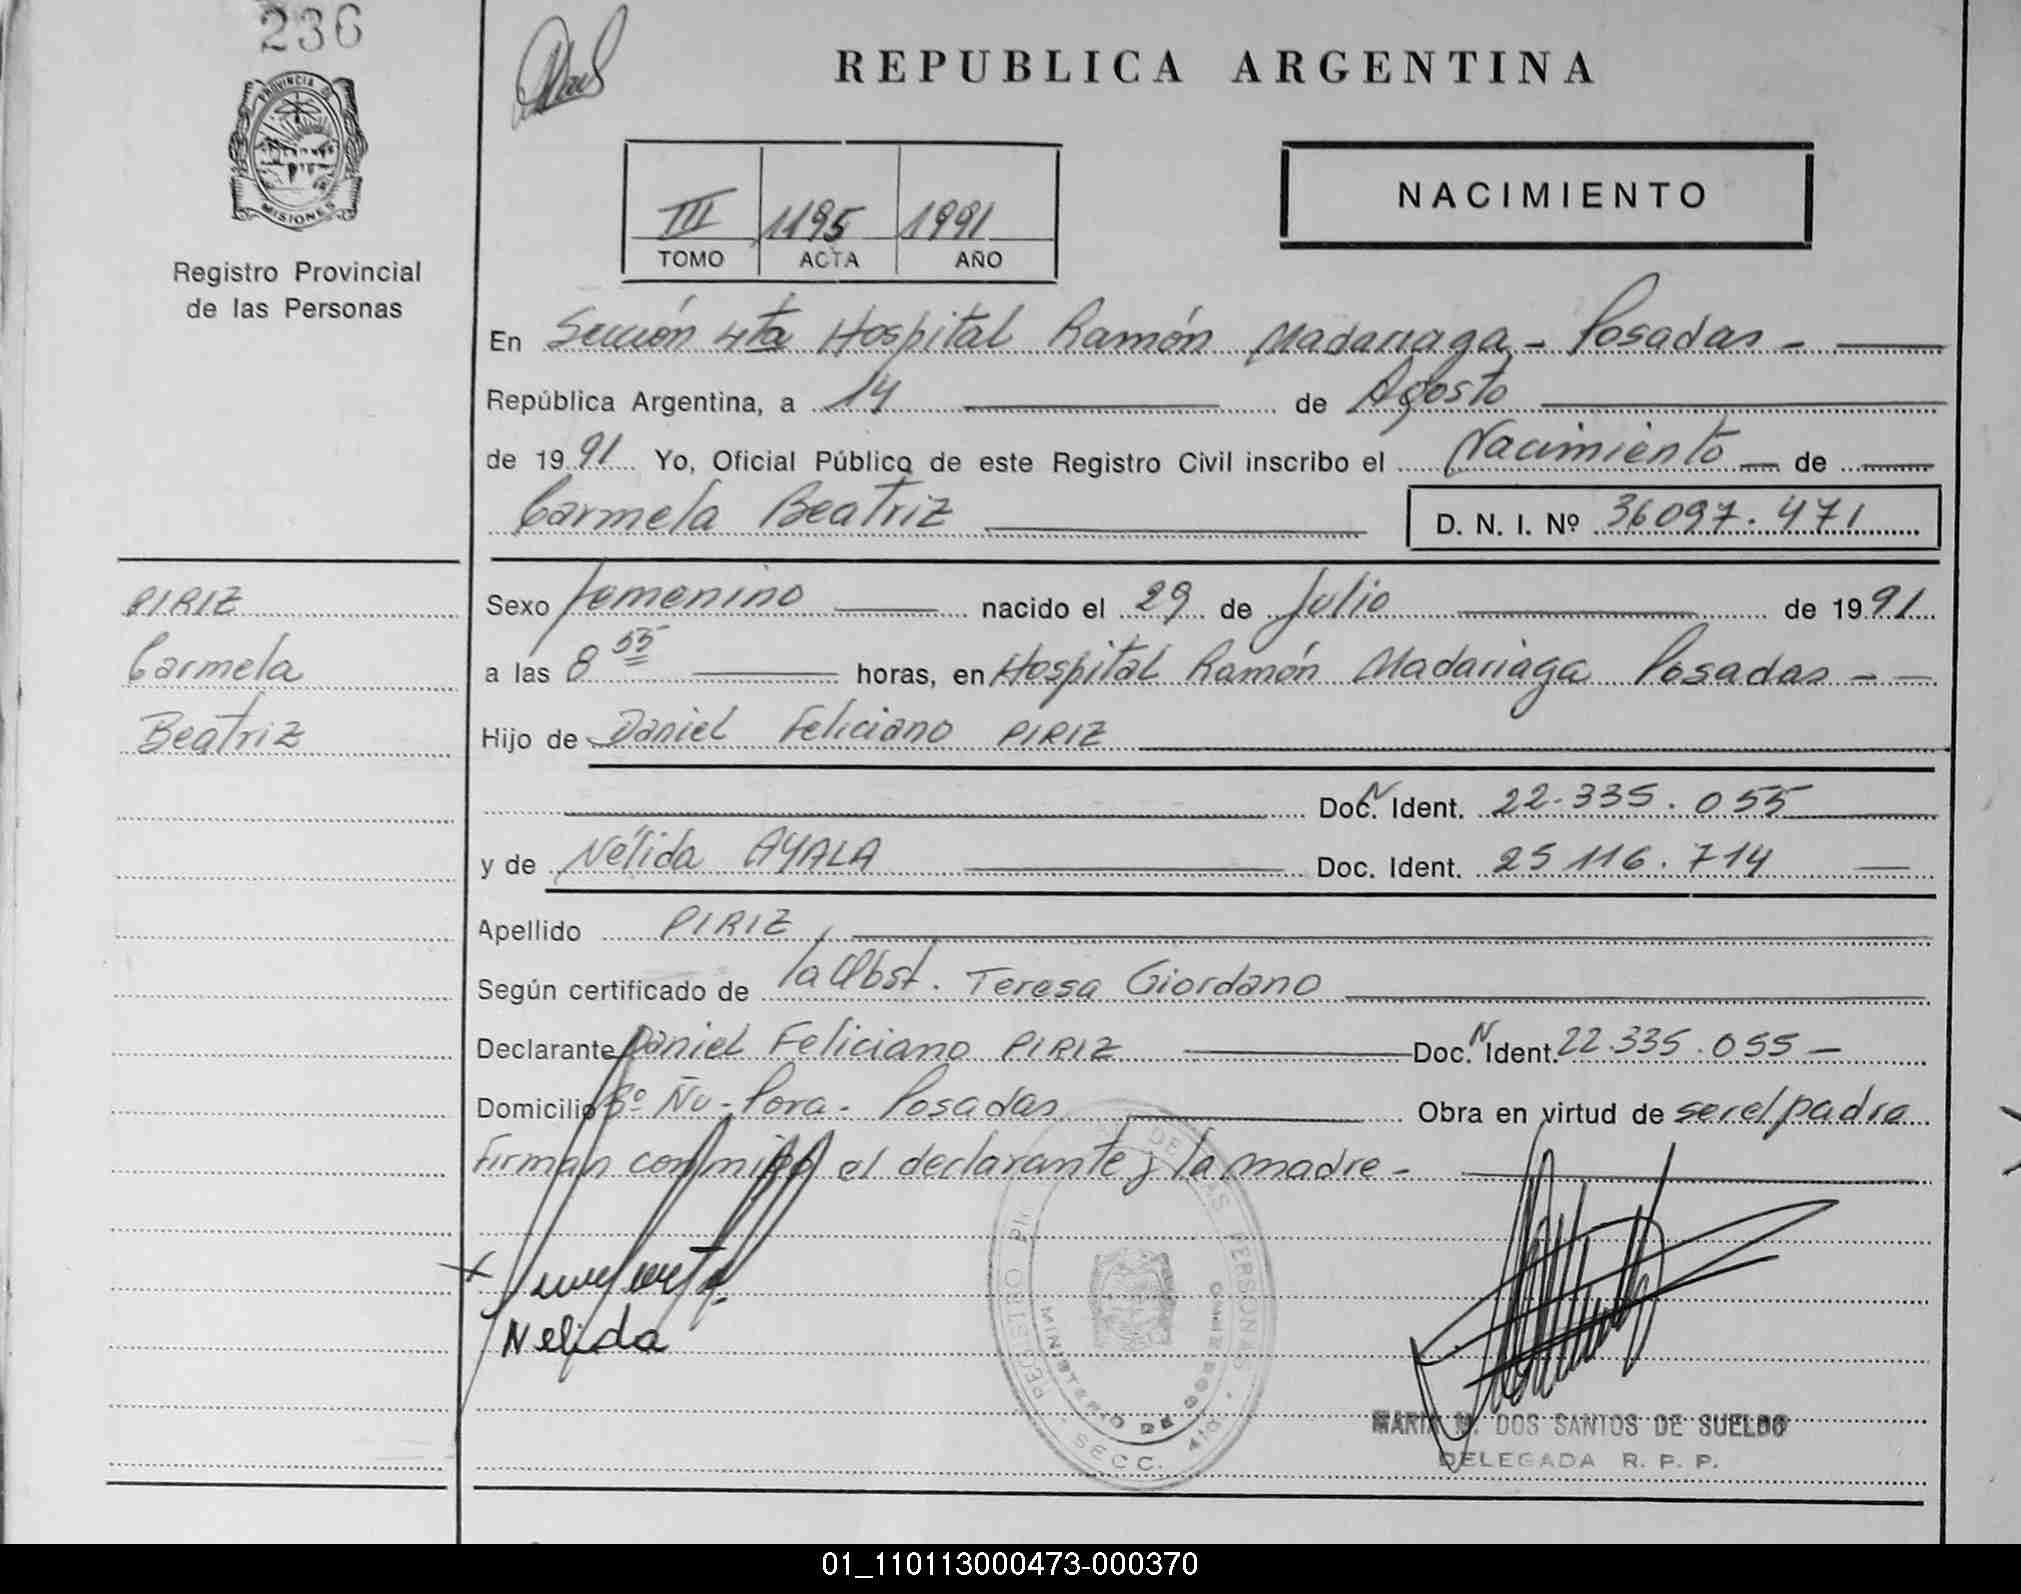 236
REPUBLICA ARGENTINA
PROVINCIA DE
MISIONES
Registro Provincial
de las Personas
III 1195 1991
TOMO ACTA AÑO
NACIMIENTO
En Sección 4ta Hospital Ramón Madariaga - Posadas -
República Argentina, a 14 de Agosto
de 1991 Yo, Oficial Público de este Registro Civil inscribo el Nacimiento de
Carmela Beatriz D. N. I. Nº 36097.471
PIRIZ
Carmela
Beatriz
Sexo femenino nacido el 29 de Julio de 1991
a las 8 55 horas, en Hospital Ramón Madariaga Posadas -
Hijo de Daniel Feliciano PIRIZ
Doc. N Ident. 22.335.055
y de Nélida AYALA Doc. Ident. 25 116.714
Apellido PIRIZ
Según certificado de la Obst. Teresa Giordano
Declarante Daniel Feliciano PIRIZ Doc. N Ident. 22.335.055 -
Domicilio Bº Ñu-Pora - Posadas Obra en virtud de ser el padre
Firman conmigo el declarante y la madre -
Nelida
REGISTRO DE LAS PERSONAS
MINISTERIO DE GOBIERNO
SECC. 4ta
MARIA M. DOS SANTOS DE SUELDO
DELEGADA R. P. P.
01_110113000473-000370